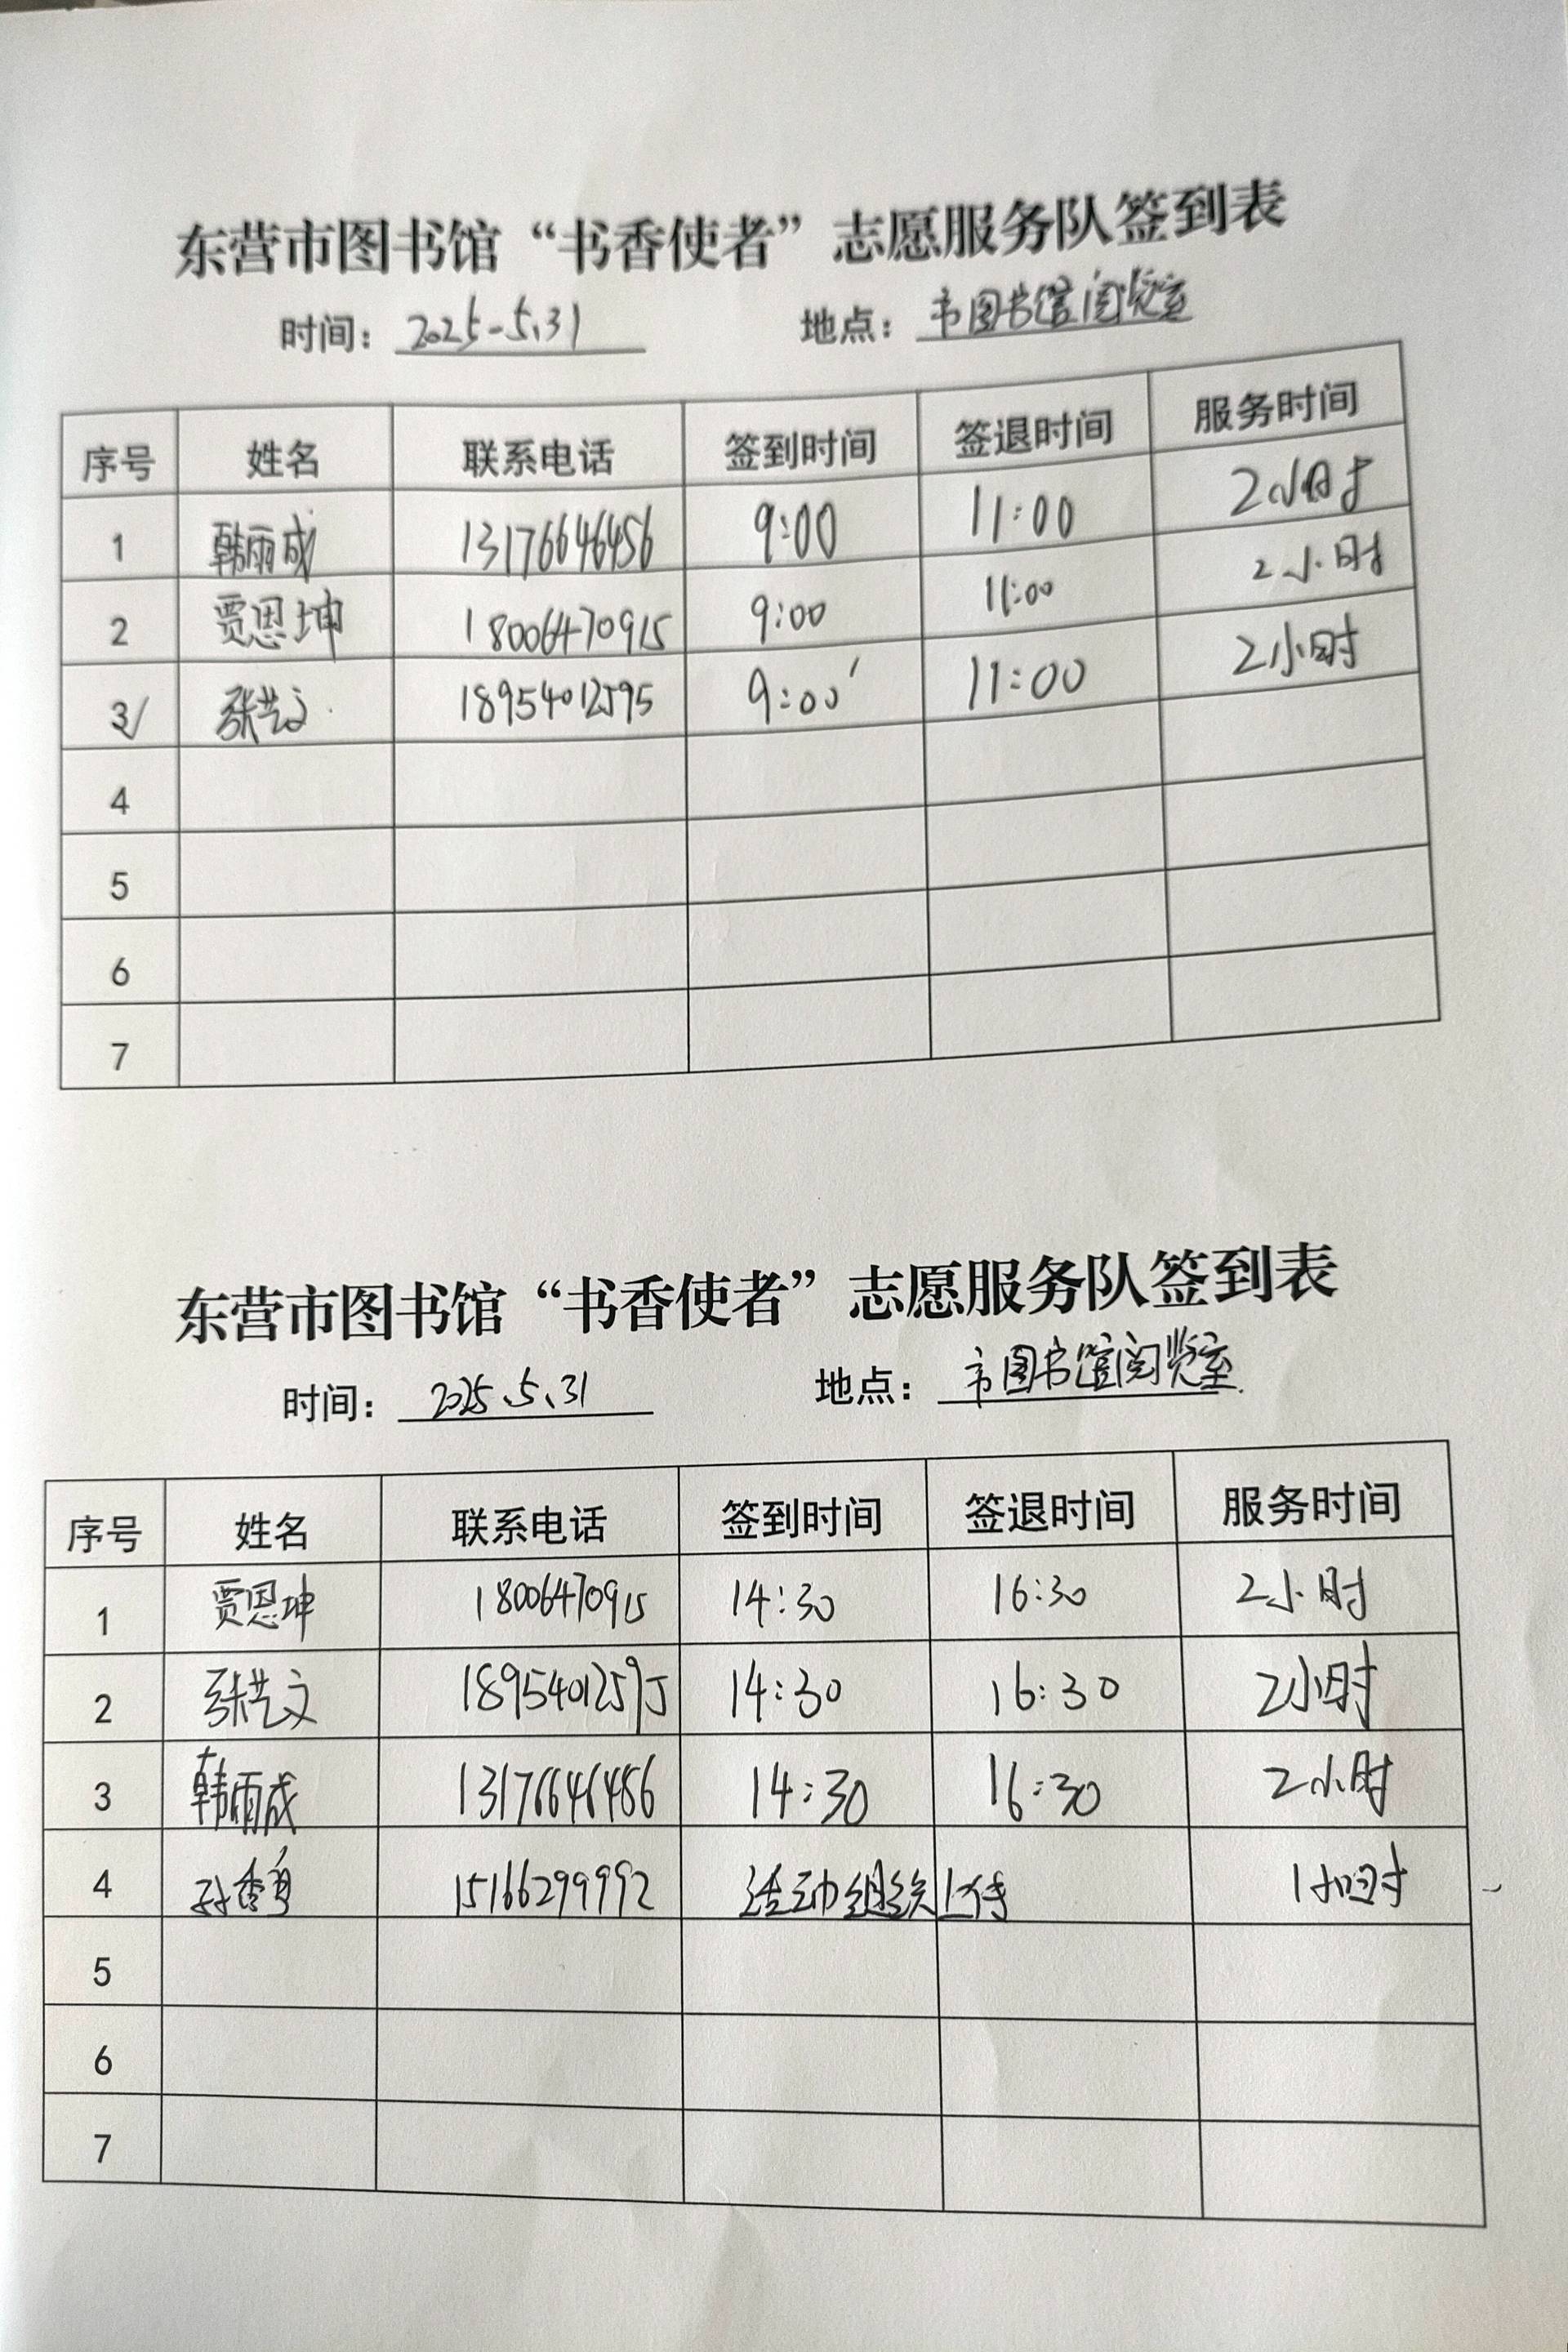 东营市图书馆“书香使者”志愿服务队签到表
时间：2025-5.31 地点：市图书馆阅览室
序号 姓名 联系电话 签到时间 签退时间 服务时间
1 韩雨成 13176646456 9:00 11:00 2小时
2 贾恩坤 18006470915 9:00 11:00 2小时
3 张艺文 18954012595 9:00 11:00 2小时
4
5
6
7
东营市图书馆“书香使者”志愿服务队签到表
时间：2025.5.31 地点：市图书馆阅览室
序号 姓名 联系电话 签到时间 签退时间 服务时间
1 贾恩坤 18006470915 14:30 16:30 2小时
2 张艺文 18954012595 14:30 16:30 2小时
3 韩雨成 13176646486 14:30 16:30 2小时
4 孙香 15166299992 活动组织上传 1小时
5
6
7